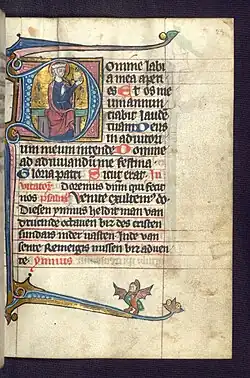 Domine labi
a mea aperi
es Et os me
um annun
ciabit laude
tuam Deus
in adiutori
um meum intende Domine
ad adiuvandū me festina
Gloria patri Sicut erat In
vitator Adoremus dnm qui fecit
nos psalm Venite exultem9
Diesen ymnus heldit man van
octaven bis des ersten
sundais in der vasten Inde van
sente Remeigis missen bis adven
te ymnus